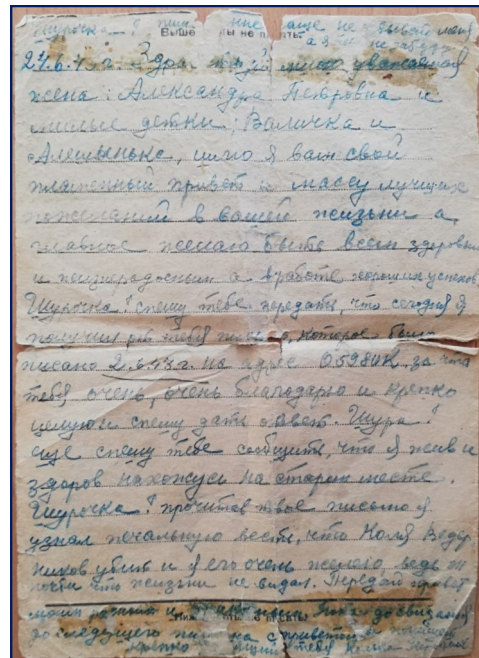 Шурочка! пиши мне чаще не забывай меня
а я не забуду
Выше не писать.
27.6.43г. Здравствуй много уважаемая
жена: Александра Петровна и
милые детки; Валичка и
Алешынька, шлю я вам свой
пламенный привет и массу лучших
пожеланий в вашей жизьни а
главное желаю быть всем здоровым
и жизнерадосным а в работе хороших успехов
Шурочка! спешу тебе передать, что сегодня я
получил от тебя письмо, которое было
писано 2.6.43г. на адрес 05980К за что
тебя очень, очень благодарю и крепко
целую и спешу дать ответ. Шура!
еще спешу тебе сообщить, что я жив и
здоров нахожусь на старом месте.
Шурочка! прочитав твое письмо я
узнал печальную весть, что Коля Ведер
ников убит и я его очень жалею, ведь он
почти что жизни не видал. Передай привет
моим и Пока досвидания
до следующего письма с приветом
крепко тебя